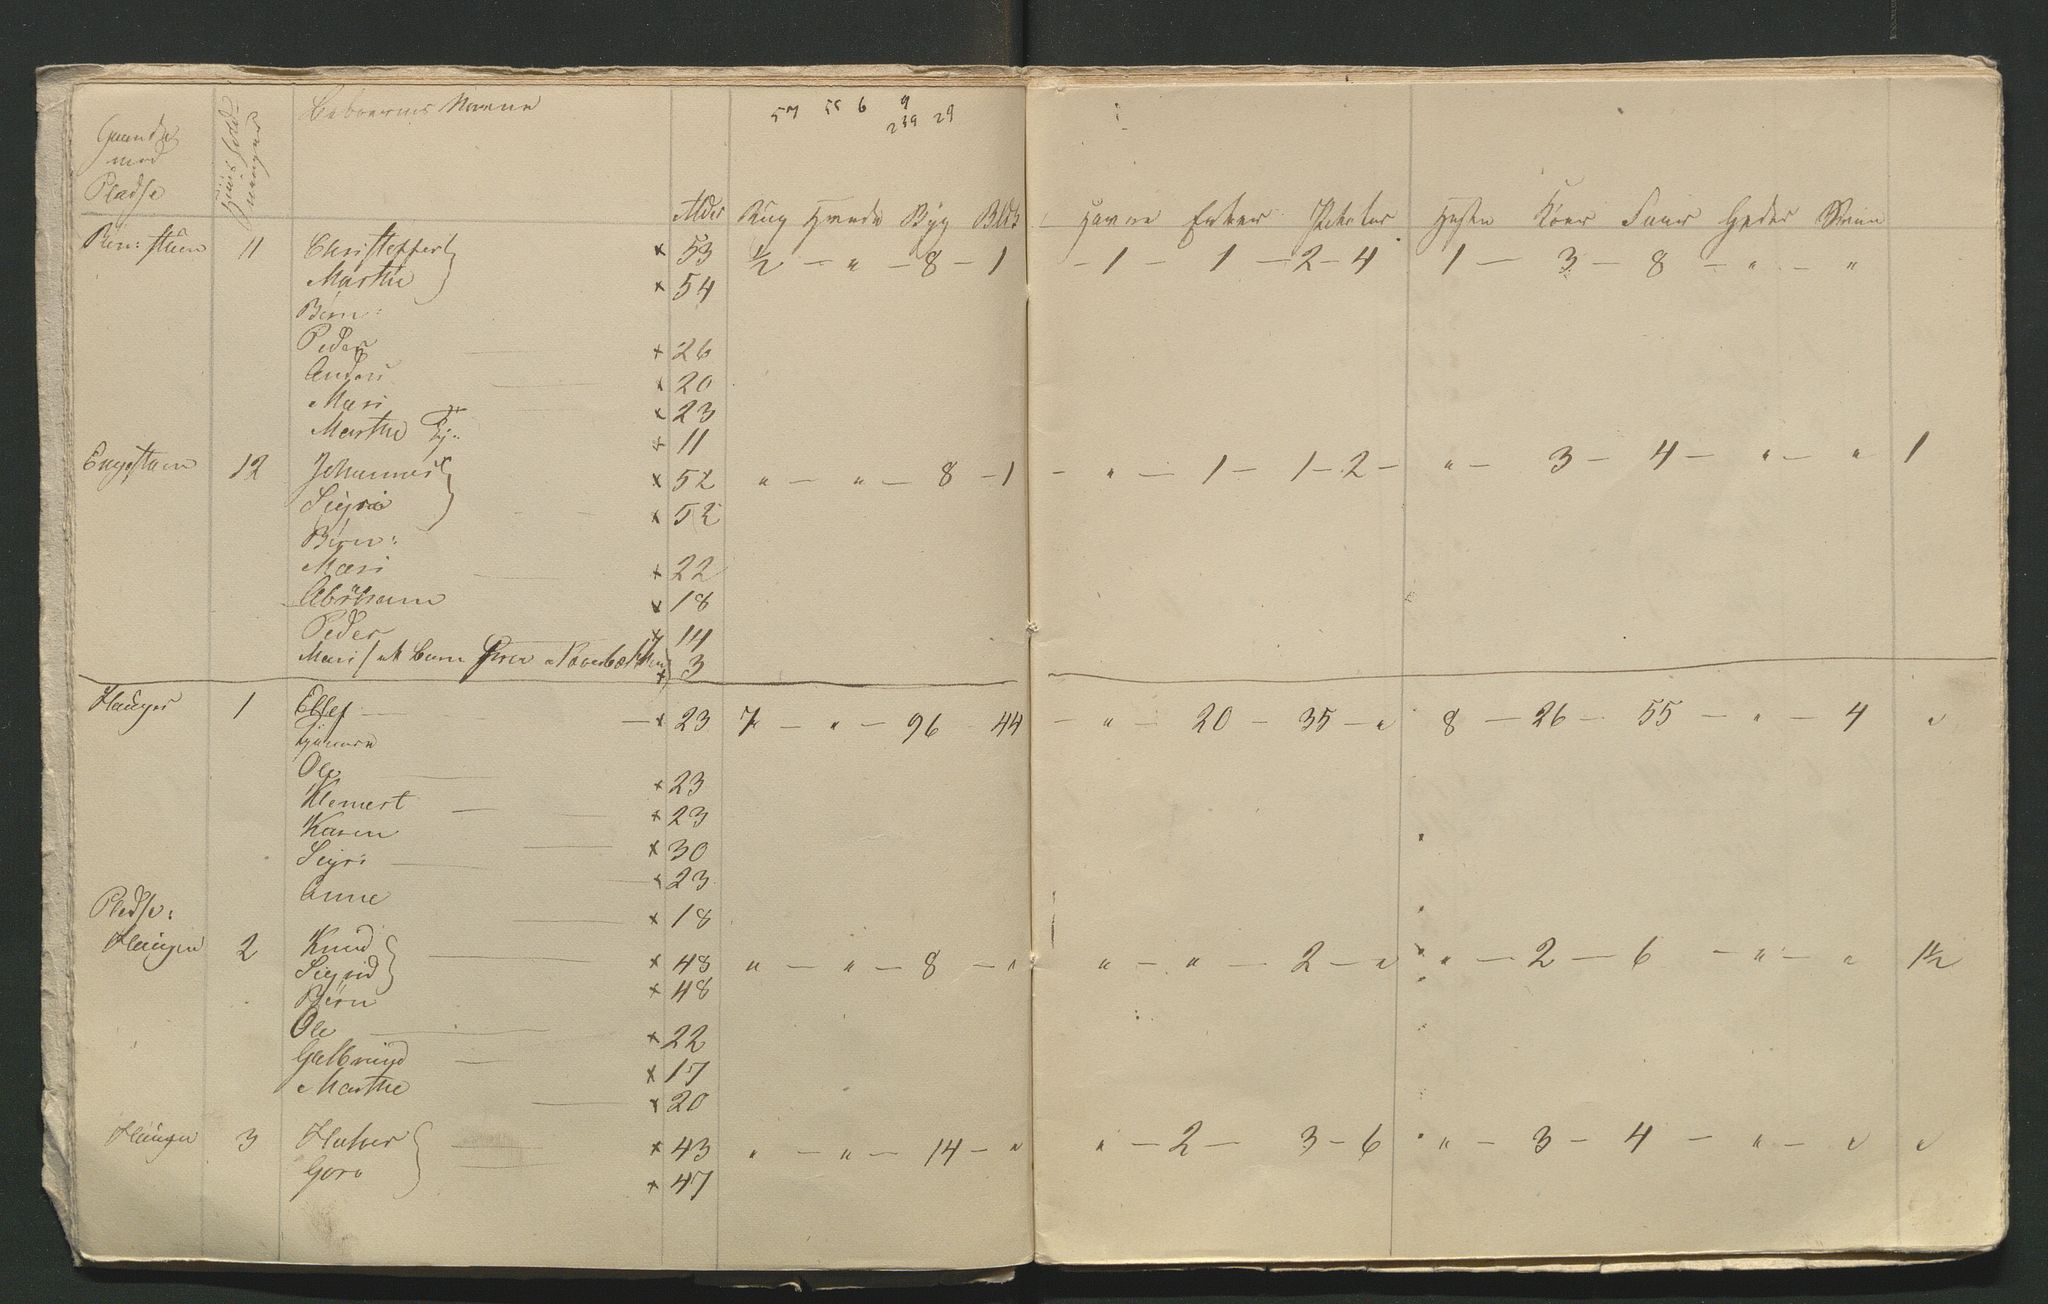 57 55 6 9
239 29
Beboernes Navne
Gaarde
med
Pladse
Alder Rug Hvede Byg Bldk Havre Erter Poteter Hester Kører Faar Geder Sviin
11 Christoffer x 53 ½ — " — 8 — 1 — 1 — 1 — 2 — 4 1 — 3 — 8 — " — "
Marthe x 54
Børn:
Peder x 26
Anders x 20
Mari x 23
Marthe Tj: x 11
12 Johannes x 52 " — " — 8 — 1 — " — 1 — 1 — 2 — " — 3 — 4 — " — " 1
Sigri x 52
Børn:
Mari x 22
Abraham x 18
Peder x 14
Mari x 3
Hauger 1 Ellef — x 23 7 — " — 96 — 44 — " — 20 — 35 — " 8 — 26 — 55 — " — 4 "
Ole x 23
Klemert x 23
Karen x 30
Sigri x 23
Anne x 18
Pladse:
Haugen 2 Knud x 48 " — " — 8 — " " — " — 2 — " " — 2 — 6 — " — " 1½
Sigrid x 48
Børn
Ole x 22
Gulbrand x 17
Marthe x 20
Haugen 3 Halver x 43 " — " — 14 — " " — 2 — 3 — 6 " — 3 — 4 — " — " "
Goro x 47